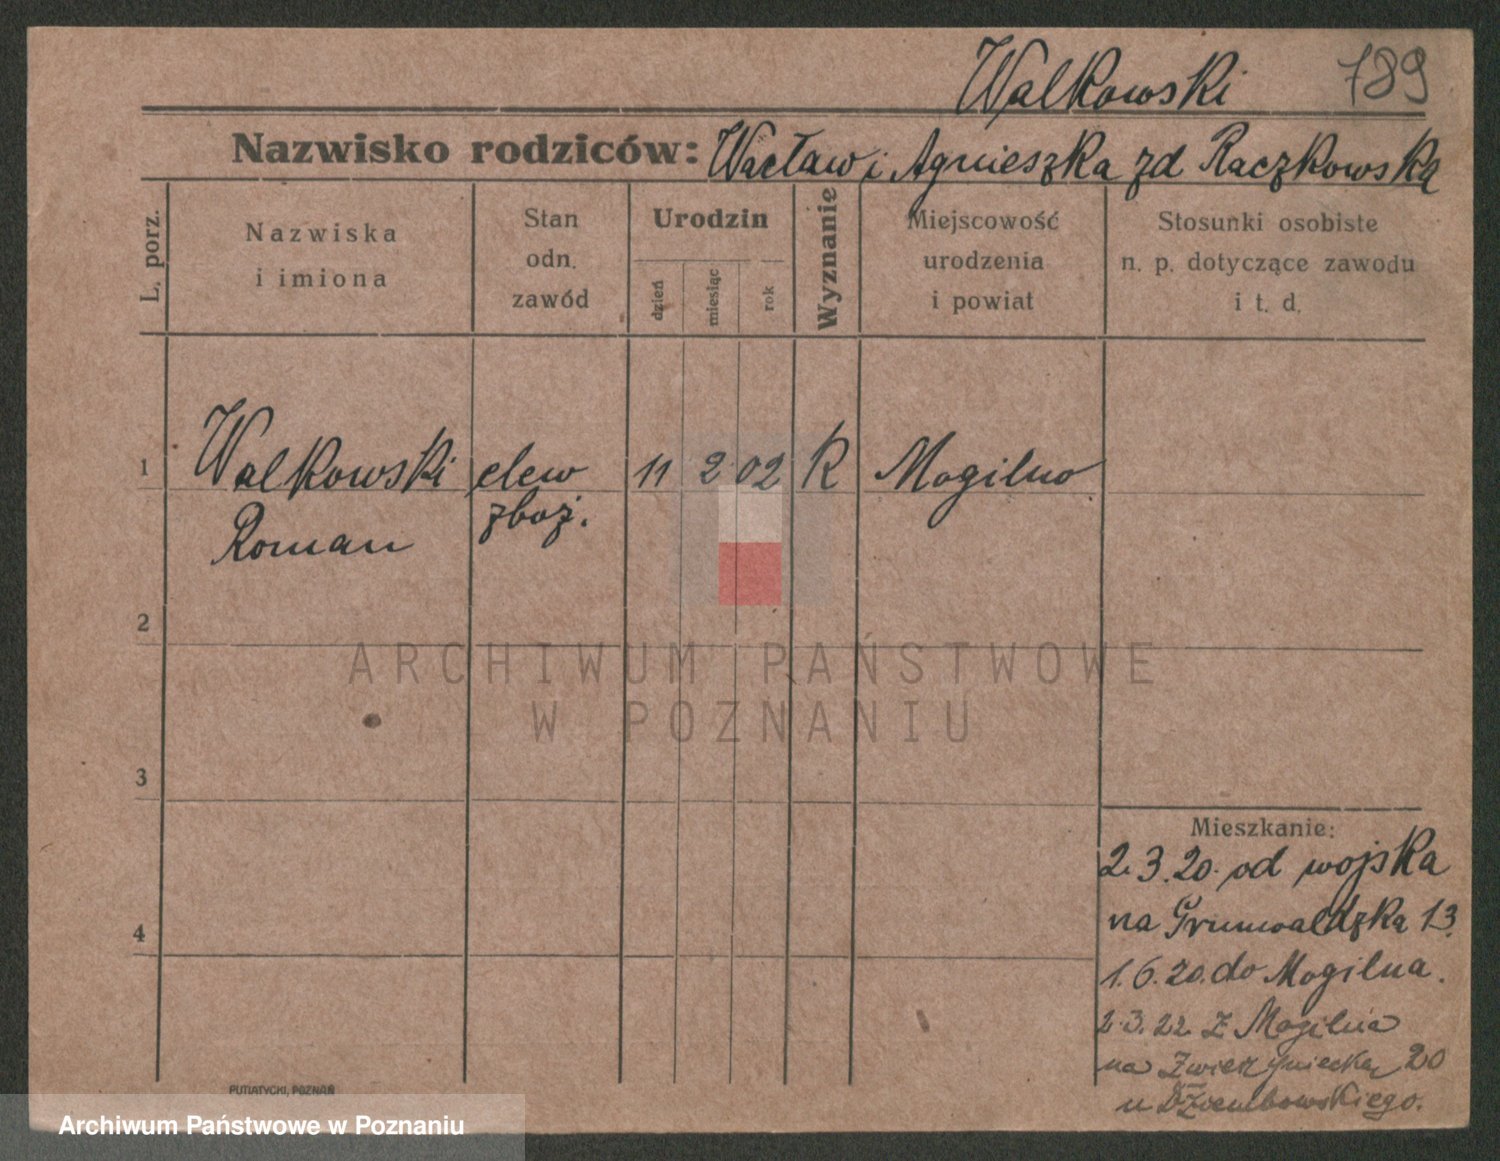 Walkowski 789
Nazwisko rodziców: Wacław i Agnieszka zd Raczkowska
L. porz.
Nazwiska
i imiona
Stan
odn.
zawód
Urodzin
dzień
miesiąc
rok
Wyznanie
Miejscowość
urodzenia
i powiat
Stosunki osobiste
n. p. dotyczące zawodu
i t. d.
1 Walkowski elew 11 2 02 K Mogilno
Roman zboż.
2
ARCHIWUM PAŃSTWOWE
W POZNANIU
3
Mieszkanie:
2.3.20. od wojska
na Grunwaldzka 13.
4
1.6.20. do Mogilna.
2.3.22. Z Mogilna
na Zwierzyniecka 20
u Dziembowskiego.
PUTIATYCKI, POZNAŃ
Archiwum Państwowe w Poznaniu